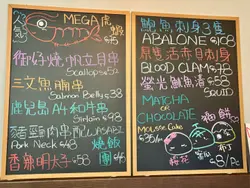 人氣
MEGA 虎
蝦
$75
術仔燒.帆立貝串
Scallop $52
三文魚腩串
Salmon Belly $38
鹿兒島A4和牛串
Sirloin $98
豬頸肉串
Pork Neck $48
燒飯
香蕉明太子 $58
團 $46
鮑魚刺身3隻
ABALONE $108
原隻活赤貝刺身
BLOOD CLAM $78
螢光魷魚漬 $58
SQUID
MATCHA
or
CHOCOLATE
Mousse Cake
$8/Pc